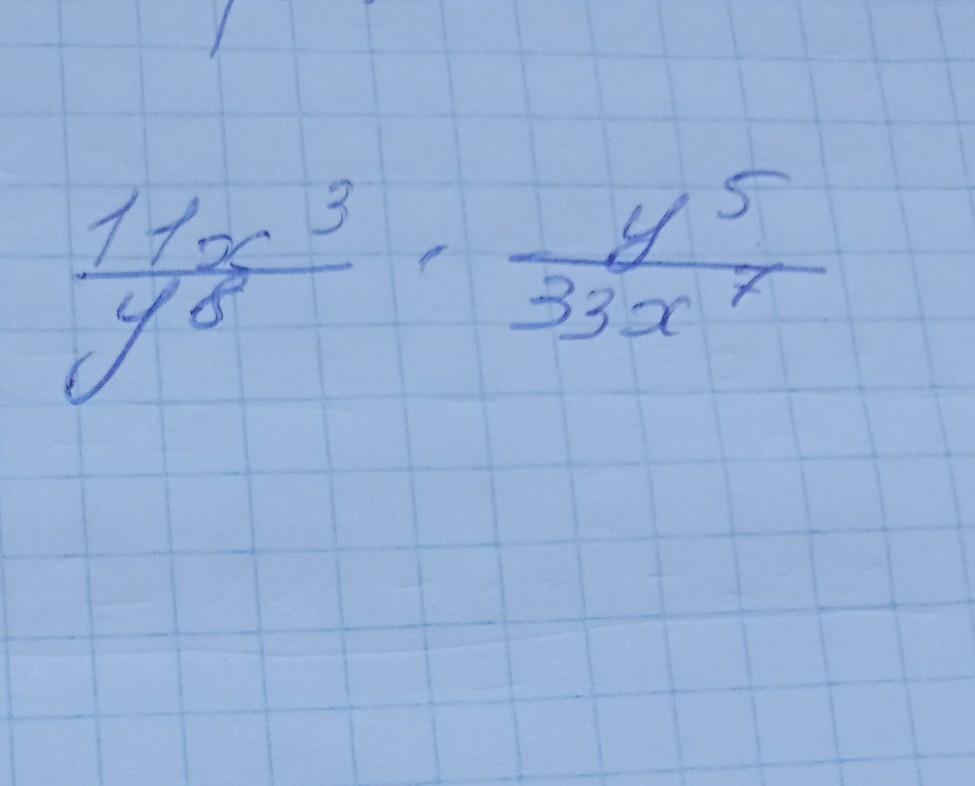 11x³/y⁸ · y⁵/33x⁷